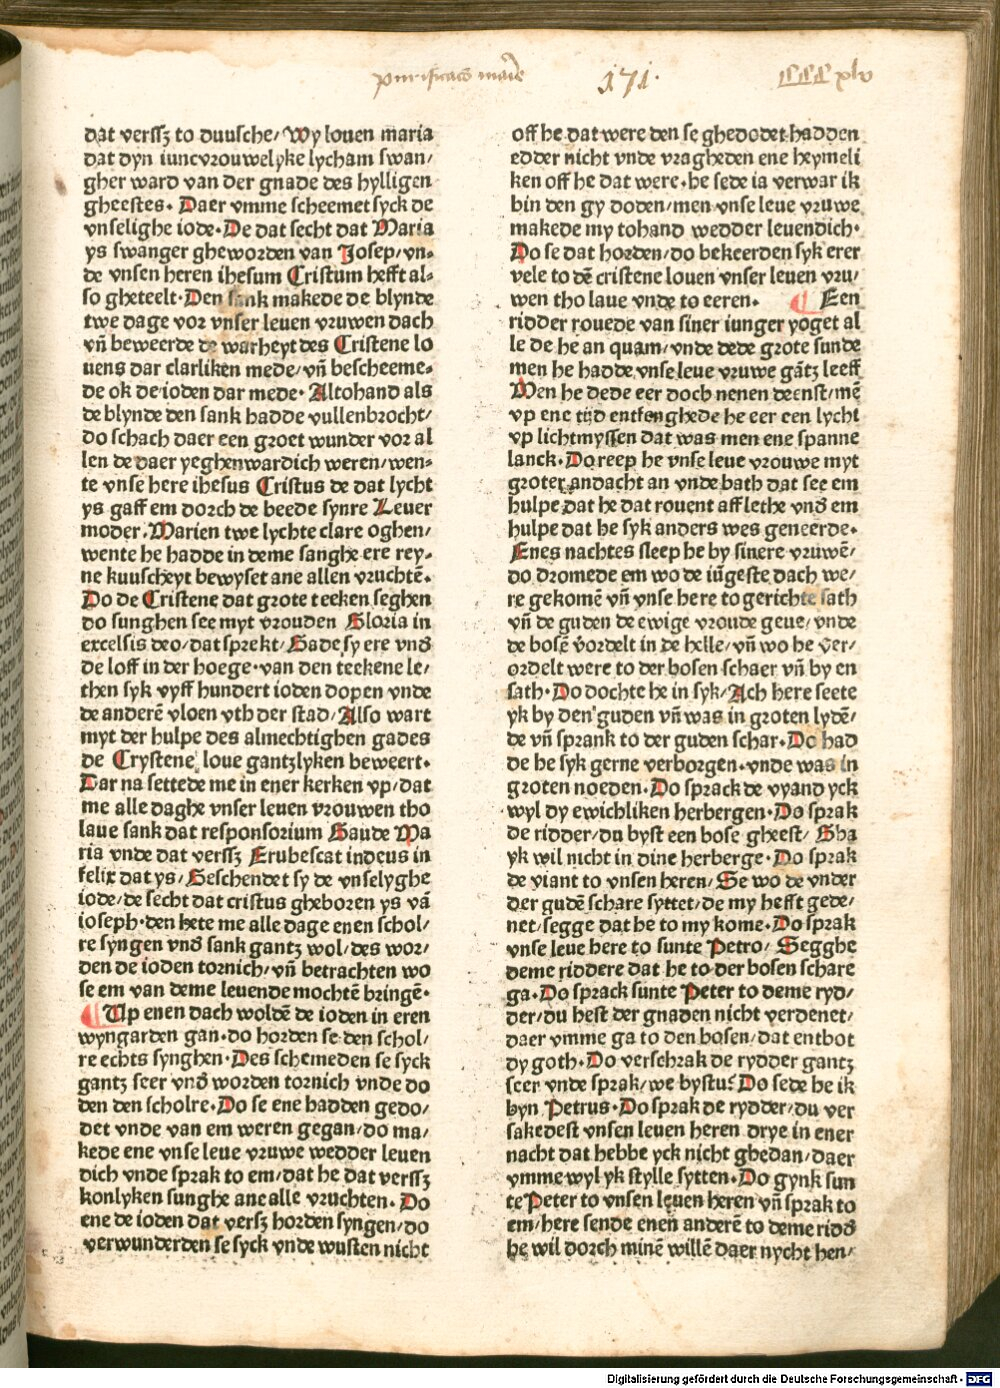 purificaco marie 171.
dat versꝫ to duusche/ Wy louen maria
dat dyn iuncvrouwelyke lycham swan/
gher ward van der gnade des hylligen
gheestes. Daer vmme scheemet syck de
vnselighe iode. De dat secht dat Maria
ys swanger gheworden van Josep/ vn-
de vnsen heren ihesum Cristum hefft al-
so gheteelt. Den sank makede de blynde
twe dage vor vnser leuen vruwen dach
vn̄ beweerde de warheyt des Cristene lo
uens dar clarliken mede/ vn̄ bescheeme-
de ok de ioden dar mede. Altohand als
de blynde den sank hadde vullenbrocht/
do schach daer een groet wunder vor al
len de daer yeghenwardich weren/ wen-
te vnse here ihesus Cristus de dat lycht
ys gaff em dorch de beede synre Leuer
moder. Marien twe lychte clare oghen/
wente he hadde in deme sanghe ere rey-
ne kuuscheyt bewyset ane allen vruchtē.
Do de Cristene dat grote teeken seghen
do sunghen see myt vrouden Gloria in
excelsis deo/ dat sprekt/ Gade sy ere vnd̄
de loff in der hoege. van den teekene le/
then syk vyff hundert ioden dopen vnde
de anderē vloen vth der stad/ Also wart
myt der hulpe des almechtighen gades
de Crystene loue gantzlyken beweert.
Dar na settede me in ener kerken vp/ dat
me alle daghe vnser leuen vrouwen tho
laue sank dat responsorium Gaude Ma
ria vnde dat versꝫ Erubescat indeus in
felix dat ys/ Geschendet sy de vnselyghe
iode/ de secht dat cristus gheboren ys vā
ioseph. den hete me alle dage enen schol/
re syngen vnd̄ sank gantz wol/ des wor/
den de ioden tornich/ vn̄ betrachten wo
se em van deme leuende mochtē bringē.
Up enen dach woldē de ioden in eren
wyngarden gan. do horden se den schol/
re echts synghen. Des schemeden se syck
gantz seer vnd̄ worden tornich vnde do
den den scholre. Do se ene hadden gedo/
det vnde van em weren gegan/ do ma/
kede ene vnse leue vruwe wedder leuen
dich vnde sprak to em/ dat he dat versꝫ
konlyken sunghe ane alle vruchten. Do
ene de ioden dat versꝫ horden syngen/ do
verwunderden se syck vnde wusten nicht
off he dat were den se ghedodet hadden
edder nicht vnde vragheden ene heymeli
ken off he dat were. he sede ia verwar ik
bin den gy doden/ men vnse leue vruwe
makede my tohand wedder leuendich.
Do se dat horden/ do bekeerden syk erer
vele to dē cristene louen vnser leuen vru/
wen tho laue vnde to eeren. Een
ridder rouede van siner iunger yoget al
le de he an quam/ vnde dede grote sunde
men he hadde vnse leue vruwe gātz leeff
Men he dede eer doch nenen deenst/ mē
vp ene tijd entfenghede he eer een lycht
vp lichtmyssen dat was men ene spanne
lanck. Do reep he vnse leue vrouwe myt
groter andacht an vnde bath dat see em
hulpe dat he dat rouent aff lethe vnd̄ em
hulpe dat he syk anders wes geneerde.
Enes nachtes sleep he by sinere vruwē/
do dromede em wo de iūgeste dach we/
re gekomē vn̄ vnse here to gerichte sath
vn̄ de guden de ewige vroude geue/ vnde
de bosē vordelt in de helle/ vn̄ wo he ver/
ordelt were to der bosen schaer vn̄ by en
sath. Do dochte he in syk/ Ach here seete
yk by den guden vn̄ was in groten lydē/
de vn̄ sprank to der guden schar. Do had
de he syk gerne verborgen. vnde was in
groten noeden. Do sprack de vyand yck
wyl dy ewichliken herbergen. Do sprak
de ridder/ du byst een bose gheest/ Gha
yk wil nicht in dine herberge. Do sprak
de viant to vnsen heren/ Se wo de vnder
der gudē schare syttet/ de my hefft gede/
net/ segge dat he to my kome. Do sprak
vnse leue here to sunte Petro/ Segghe
deme riddere dat he to der bosen schare
ga. Do sprack sunte Peter to deme ryd/
der/ du hest der gnaden nicht verdenet/
daer vmme ga to den bosen/ dat entbot
dy goth. Do verschrak de rydder gantz
seer vnde sprak/ we bystu? Do sede he ik
byn Petrus. Do sprak de rydder/ du ver
sakedest vnsen leuen heren drye in ener
nacht dat hebbe yck nicht ghedan/ daer
vmme wyl yk stylle sytten. Do gynk sun
te Peter to vnsen leuen heren vn̄ sprak to
em/ here sende enen anderē to deme ridd̄
he wil dorch minē willē daer nycht hen/
Digitalisierung gefördert durch die Deutsche Forschungsgemeinschaft - DFG